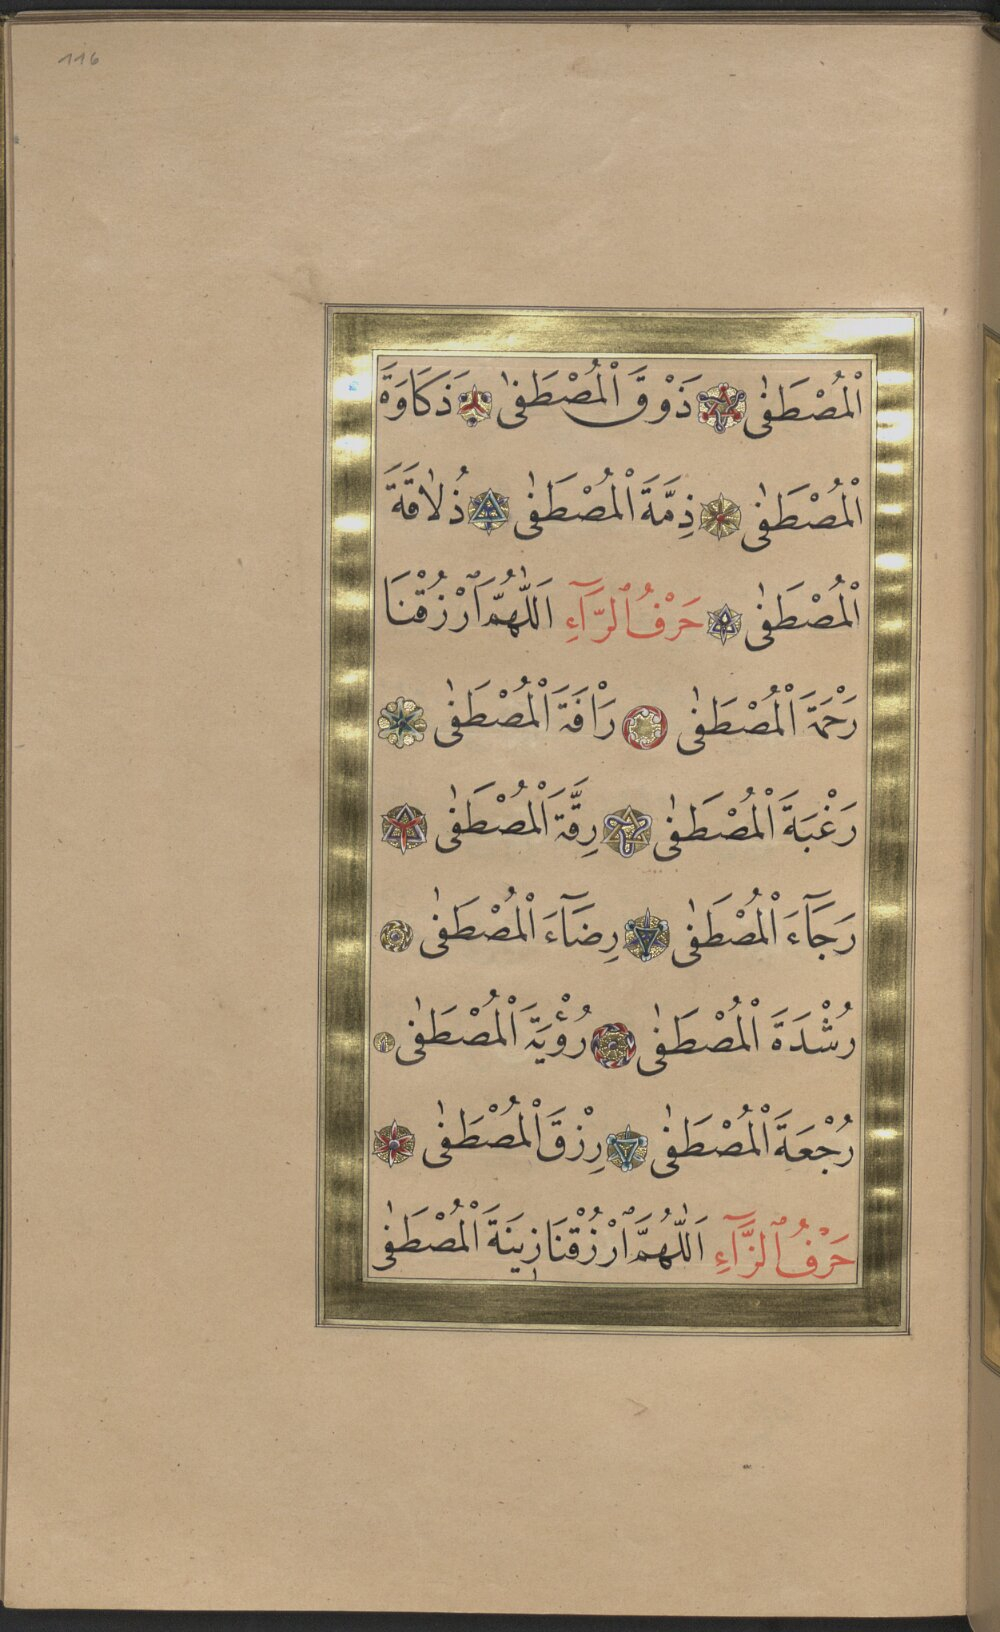 116
اَلْمُصْطَفٰى ذَوْقَ الْمُصْطَفٰى ذَكَاوَةَ
الْمُصْطَفٰى ذِمَّةَ الْمُصْطَفٰى ذُلَاقَةَ
الْمُصْطَفٰى حَرْفُ الرَّآءِ اَللّٰهُمَّ ارْزُقْنَا
رَحْمَةَ الْمُصْطَفٰى رَاْفَةَ الْمُصْطَفٰى
رَغْبَةَ الْمُصْطَفٰى رِقَّةَ الْمُصْطَفٰى
رَجَآءَ الْمُصْطَفٰى رِضَآءَ الْمُصْطَفٰى
رُشْدَةَ الْمُصْطَفٰى رُؤْيَةَ الْمُصْطَفٰى
رُجْعَةَ الْمُصْطَفٰى رِزْقَ الْمُصْطَفٰى
حَرْفُ الزَّآءِ اَللّٰهُمَّ ارْزُقْنَا زِينَةَ الْمُصْطَفٰى